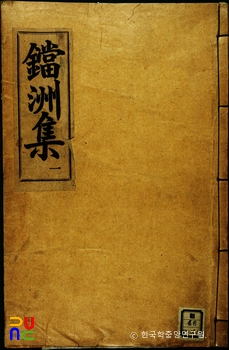 鐺洲集
一
© 한국학중앙연구원